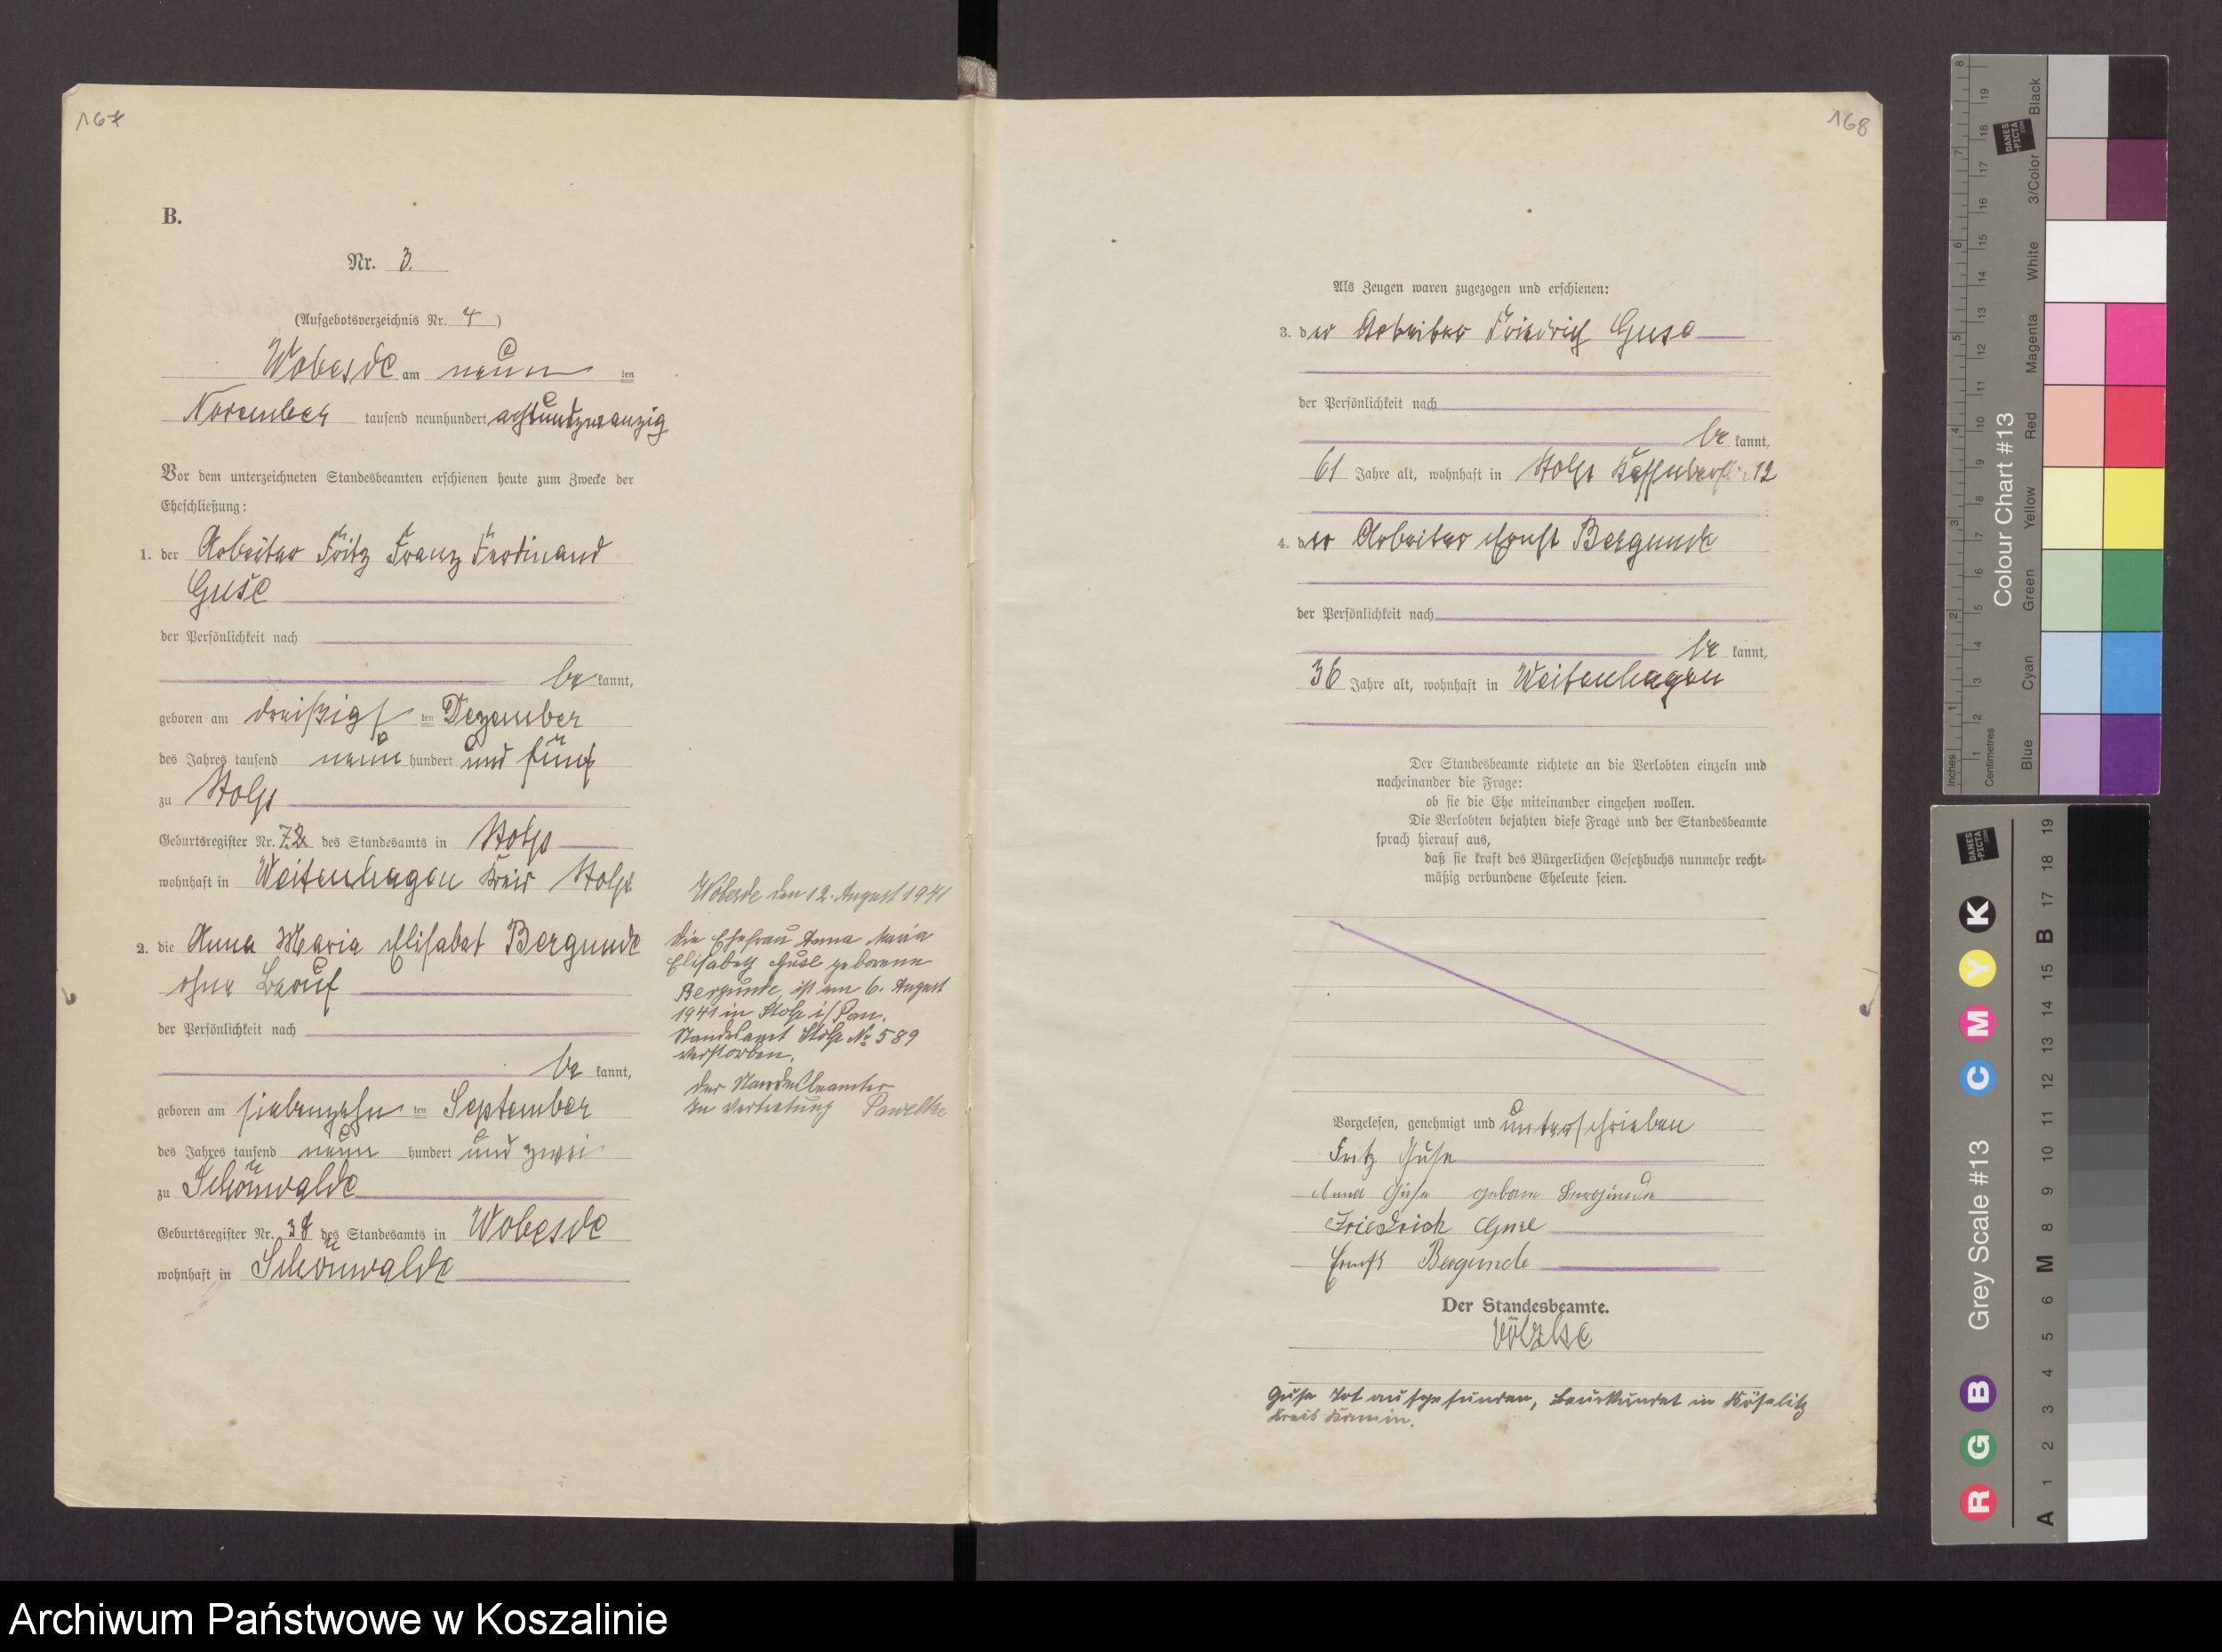 167
B.
Nr. 3.
(Aufgebotsverzeichnis Nr. 4)
Wobesde am neun ten
November tausend neunhundert achtundzwanzig
Vor dem unterzeichneten Standesbeamten erschienen heute zum Zwecke der
Eheschließung:
1. der Arbeiter Fritz Franz Ferdinand
Guse
der Persönlichkeit nach
be kannt,
geboren am dreißigs ten Dezember
des Jahres tausend neun hundert und fünf
zu Stolp
Geburtsregister Nr. des Standesamts in Stolp
wohnhaft in Weitenhagen Kreis Stolp
2. die Anna Maria Elisabet Bergunde
ohne Beruf
der Persönlichkeit nach
be kannt,
geboren am siebenzehn ten September
des Jahres tausend neun hundert und zwei
zu Schönwalde
Geburtsregister Nr. 38 des Standesamts in Wobesde
wohnhaft in Schönwalde
Wobesde den 12. August 1941
Die Ehefrau Anna Maria
Elisabeth Guse geborene
Bergunde, ist am 6. August
1941 in Stolp i/Pom.
Standesamt Stolp No 589
verstorben.
Der Standesbeamte
In Vertretung Pawelke
168
Als Zeugen waren zugezogen und erschienen:
3. der Arbeiter Friedrich Guse
der Persönlichkeit nach
be kannt,
61 Jahre alt, wohnhaft in Stolp 12
4. der Arbeiter Ernst Bergunde
der Persönlichkeit nach
be kannt,
36 Jahre alt, wohnhaft in Weitenhagen
Der Standesbeamte richtete an die Verlobten einzeln und
nacheinander die Frage:
ob sie die Ehe miteinander eingehen wollen.
Die Verlobten bejahten diese Frage und der Standesbeamte
sprach hierauf aus,
daß sie kraft des Bürgerlichen Gesetzbuchs nunmehr recht-
mäßig verbundene Eheleute seien.
Vorgelesen, genehmigt und unterschrieben
Fritz Guse
Anna Guse geborne Bergunde
Friedrich Guse
Ernst Bergunde
Der Standesbeamte.
Völzke
Guse tot aufgefunden, beurkundet in Köselitz
Kreis Kamin.
Inches
Centimetres
Colour Chart #13
Blue
Cyan
Green
Yellow
Red
Magenta
White
3/Color
Black
DANES
-PICTA
.COM
Grey Scale #13
R G B C M Y K
A 1 2 3 4 5 6 M 8 9 10 11 12 13 14 15 B 17 18 19
Archiwum Państwowe w Koszalinie